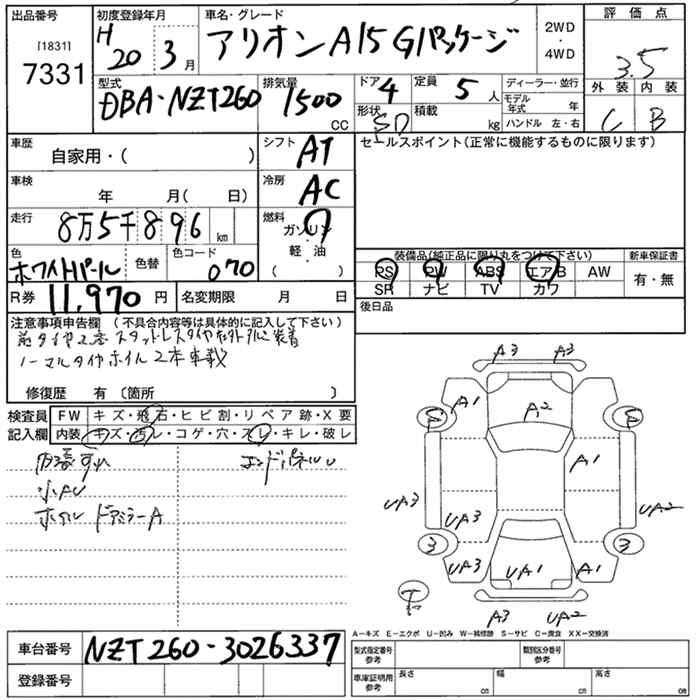 出品番号 初度登録年月 車名・グレード 2WD・4WD 評価点
[1831] 7331 H20 3月 アリオン A15 Gパッケージ 3.5
型式 排気量 ドア 4 定員 5人 ディーラー・並行 外装 内装
DBA-NZT260 1500 CC 形状 SD 積載 kg モデル年式 年 C B
ハンドル 左・右
車歴 自家用・( ) シフト AT セールスポイント(正常に機能するものに限ります)
車検 年 月( 日) 冷房 AC
走行 8万5千896 km 燃料 ガソリン
軽・油
( )
色 ホワイトパール 色替 色コード 070
装備品(純正品に限り丸をつけて下さい) 新車保証書
PS PW ABS エアB AW 有・無
SR ナビ TV カワ
R券 11,970円 名変期限 月 日 後日品
注意事項申告欄 (不具合内容等は具体的に記入して下さい)
前タイヤ2本スタッドレスタイヤ 装着
ノーマルタイヤホイル2本車載
修復歴 有 〔箇所 〕
検査員 FW キズ・飛石・ヒビ割・リペア跡・X要
記入欄 内装 キズ・汚レ・コゲ・穴・スレ・キレ・破レ
内張すれ エンドパネルU
小AU
ホイル ドアミラーA
A3 A3
A1 A2
A1
UA3 UA3 UA2
3 3
UA3 UA1 A1
A3 UA2
A―キズ E―エクボ U―凹み W―補修跡 S―サビ C―腐食 XX―交換済
車台番号 NZT260-3026337 型式指定番号 参考 類別区分番号 参考
登録番号 車庫証明用 参考 長さ cm 幅 cm 高さ cm